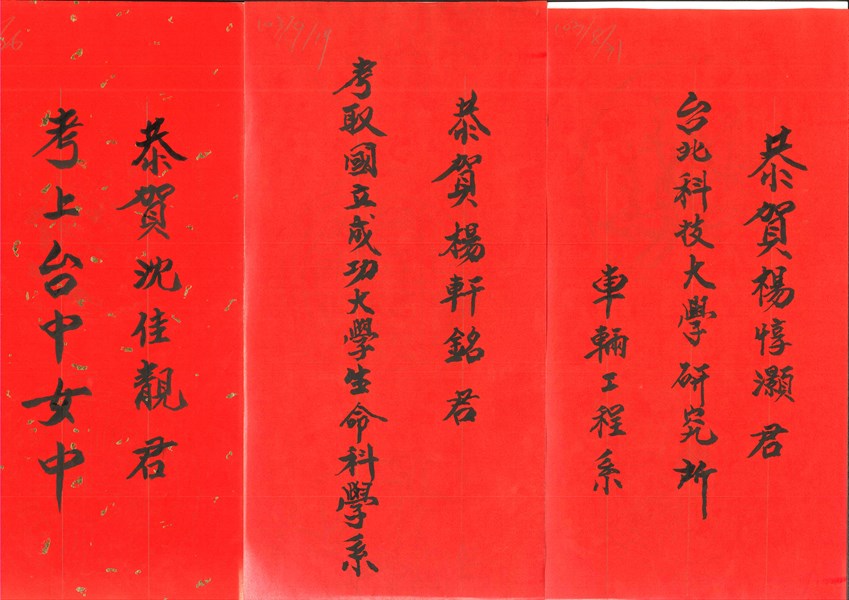 恭賀楊惇灝君
台北科技大學研究所
車輛工程系
恭賀楊軒銘君
考取國立成功大學生命科學系
恭賀沈佳靚君
考上台中女中